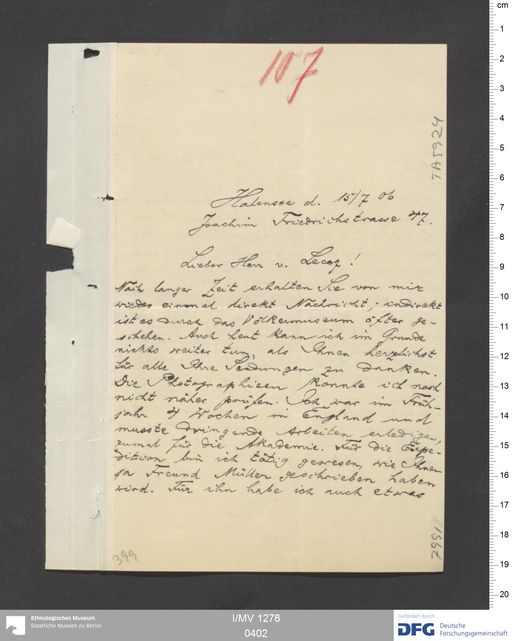 107
TA5924
Halensee d. 15/7 06
Joachim Friedrichstrasse 47.
Lieber Herr v. Lecoq!
Nach langer Zeit erhalten Sie von mir
wieder einmal direkt Nachricht; indirekt
ist es durch das Völkermuseum öfter ge-
schehen. Auch heut kann ich im Grunde
nichts weiter tun, als Ihnen herzlichst
für alle Ihre Sendungen zu danken.
Die Photographieen konnte ich noch
nicht näher prüfen. Ich war im Früh-
jahr 4 Wochen in England und
musste dringende Arbeiten erledigen,
zumal für die Akademie. Für die Expe-
dition bin ich tätig gewesen, wie Ihnen
ja Freund Müller geschrieben haben
wird. Für ihn habe ich auch etwas
399
cm
1
2
3
4
5
6
7
8
9
10
11
12
13
14
15
16
17
18
19
20
Ethnologisches Museum
Staatliche Museen zu Berlin
I/MV 1278
0402
Gefördert durch
DFG Deutsche
Forschungsgemeinschaft